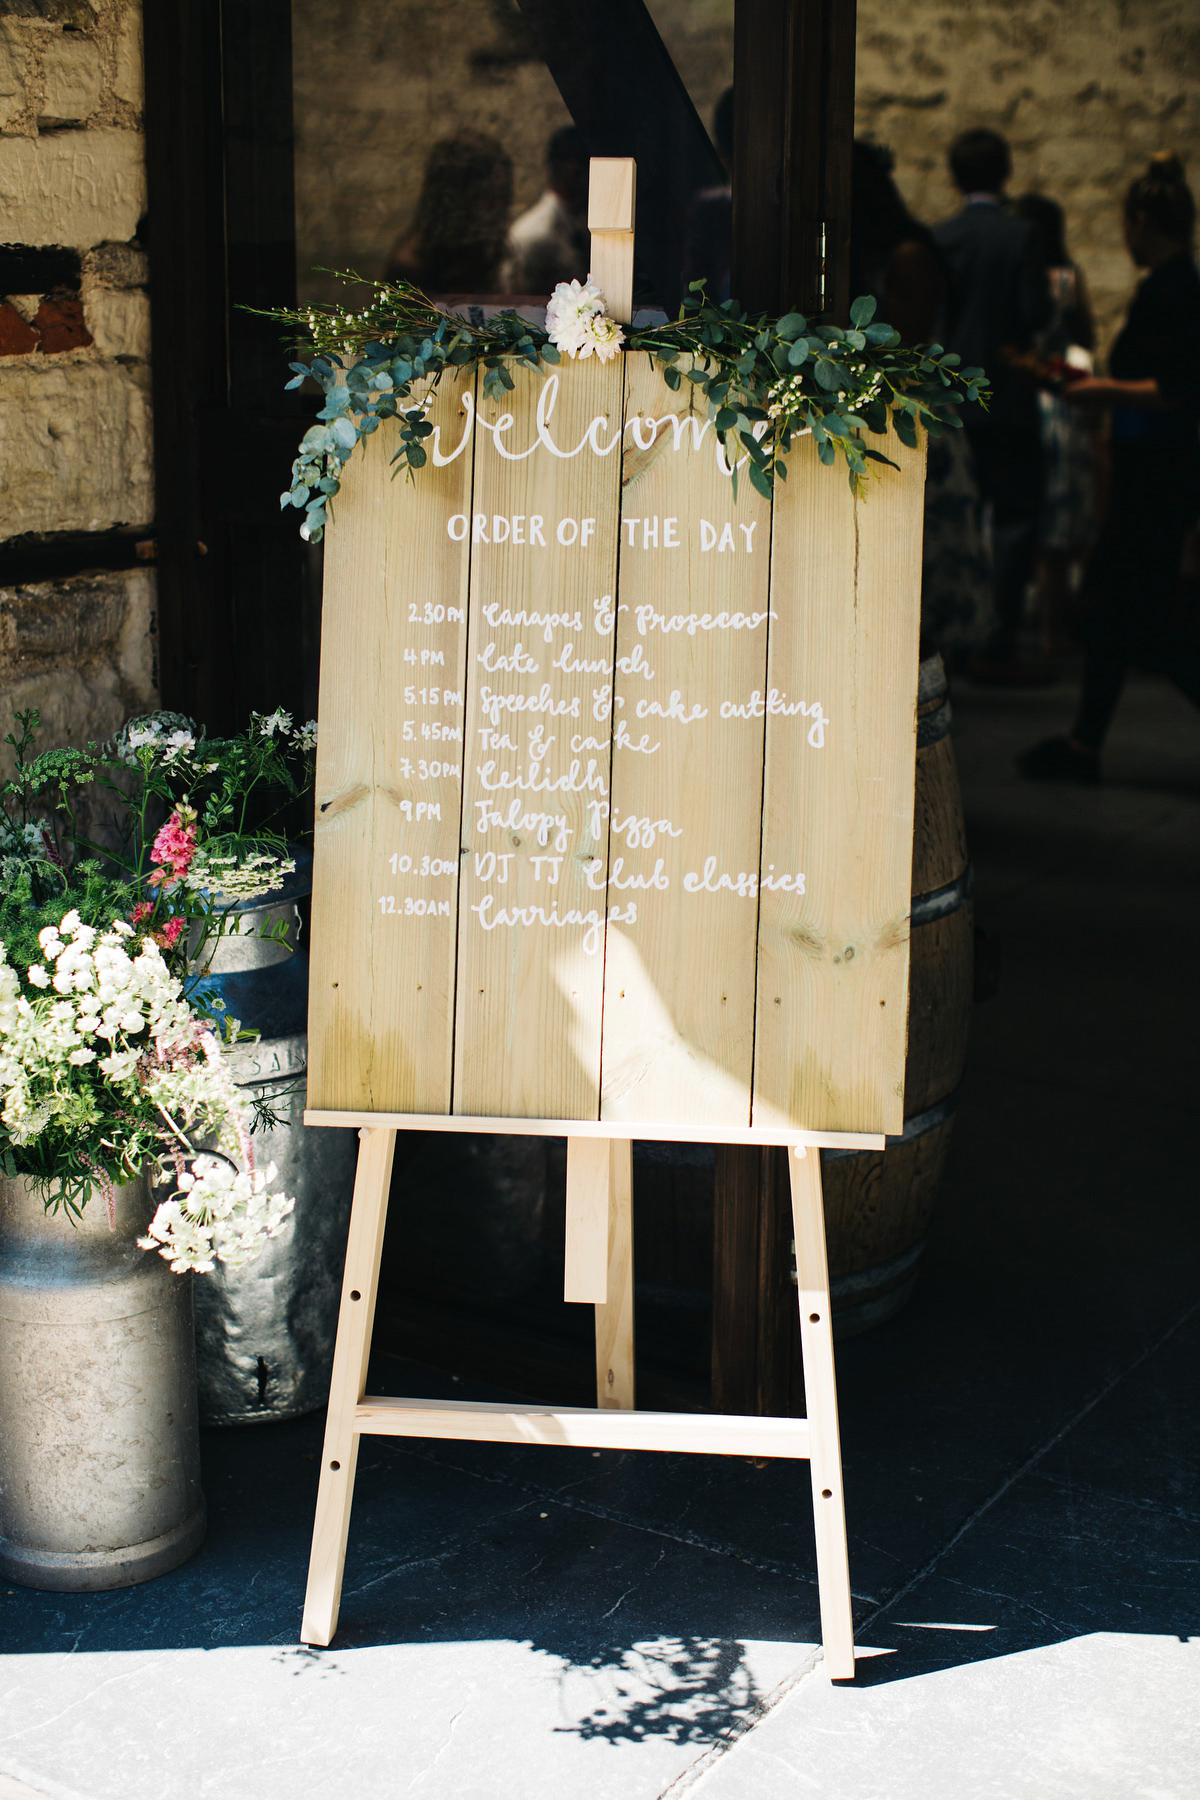 Welcome
ORDER OF THE DAY
2.30PM Canapes & Prosecco
4PM late lunch
5.15PM Speeches & cake cutting
5.45PM Tea & cake
7.30PM Ceilidh
9PM Jalopy Pizza
10.30PM DJ TJ Club classics
12.30AM Carriages